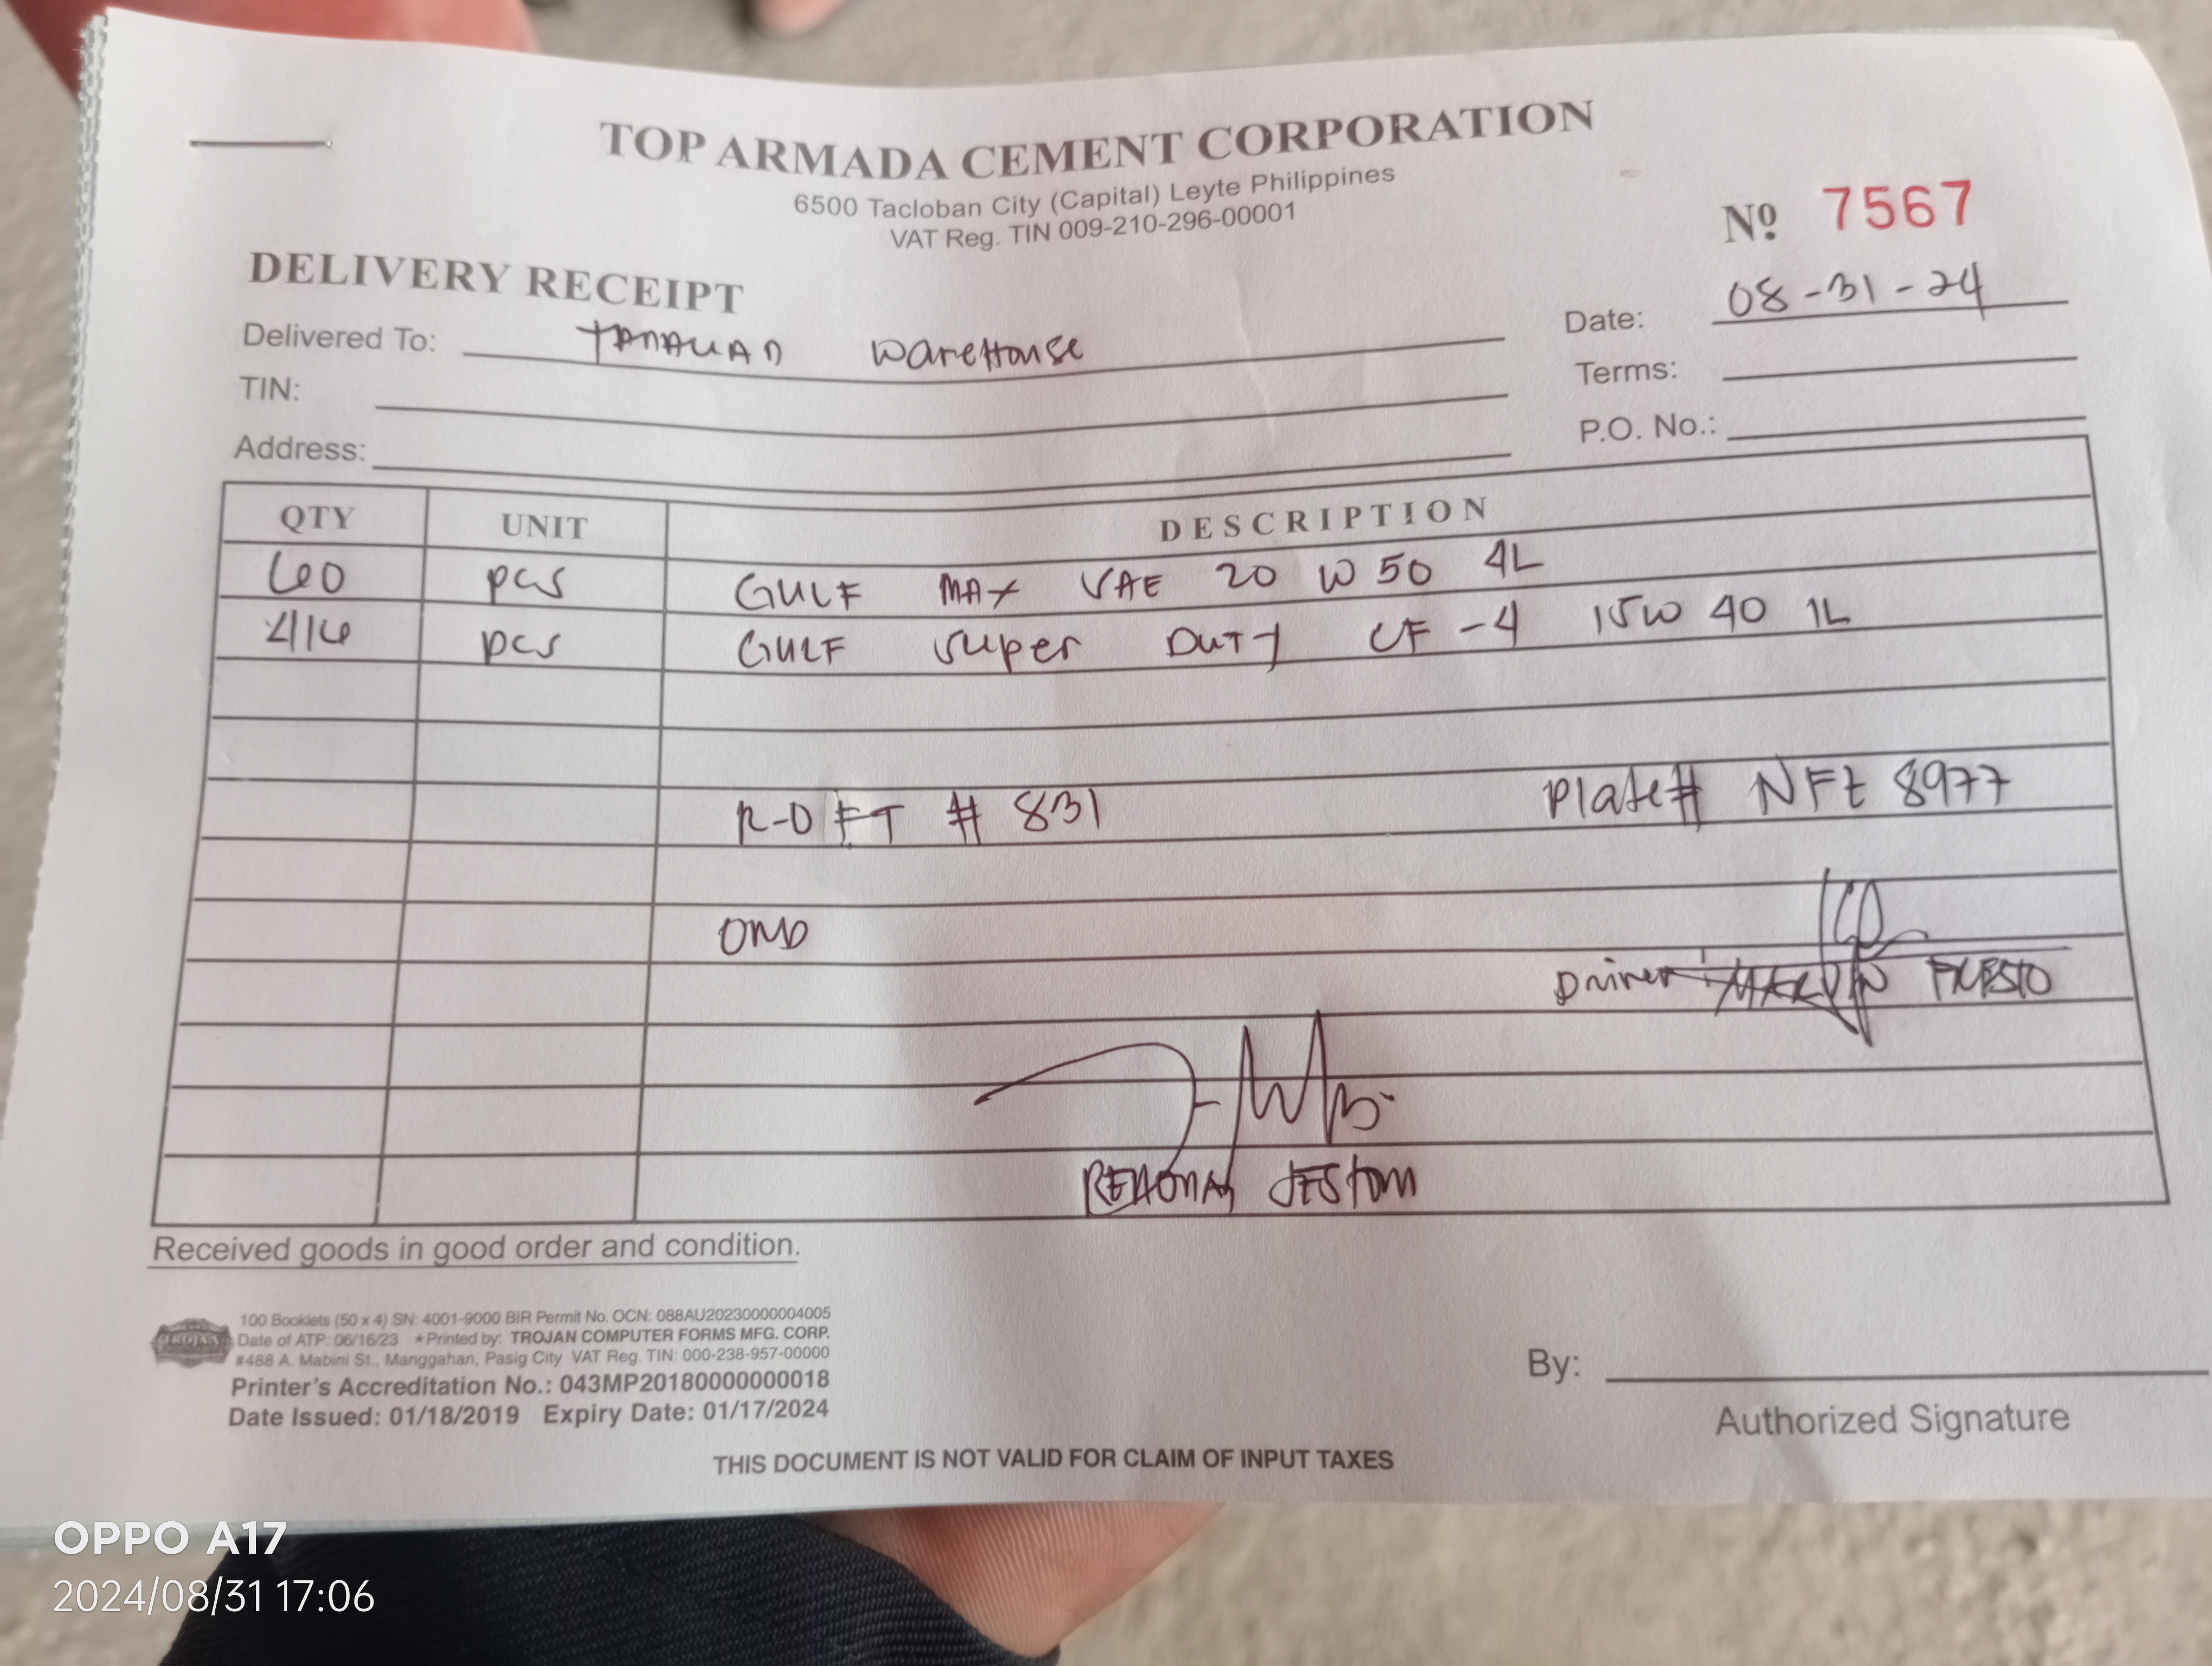 TOP ARMADA CEMENT CORPORATION
6500 Tacloban City (Capital) Leyte Philippines
VAT Reg. TIN 009-210-296-00001
Nº 7567
DELIVERY RECEIPT
Delivered To: TANAUAN WAREHOUSE
Date: 08-31-24
TIN:
Terms:
Address:
P.O. No.:
QTY UNIT DESCRIPTION
60 pcs GULF MAX VAE 20 W 50 4L
416 pcs GULF super DUTY CF-4 15W 40 1L
R-OFT # 831 Plate# NFZ 8977
OMD
Driver: MARVIN
JESTONI
Received goods in good order and condition.
100 Booklets (50 x 4) SN: 4001-9000 BIR Permit No. OCN: 088AU20230000004005
Date of ATP: 06/16/23 ★Printed by: TROJAN COMPUTER FORMS MFG. CORP.
#488 A. Mabini St., Manggahan, Pasig City VAT Reg. TIN: 000-238-957-00000
Printer's Accreditation No.: 043MP20180000000018
Date Issued: 01/18/2019 Expiry Date: 01/17/2024
By:
Authorized Signature
THIS DOCUMENT IS NOT VALID FOR CLAIM OF INPUT TAXES
OPPO A17
2024/08/31 17:06